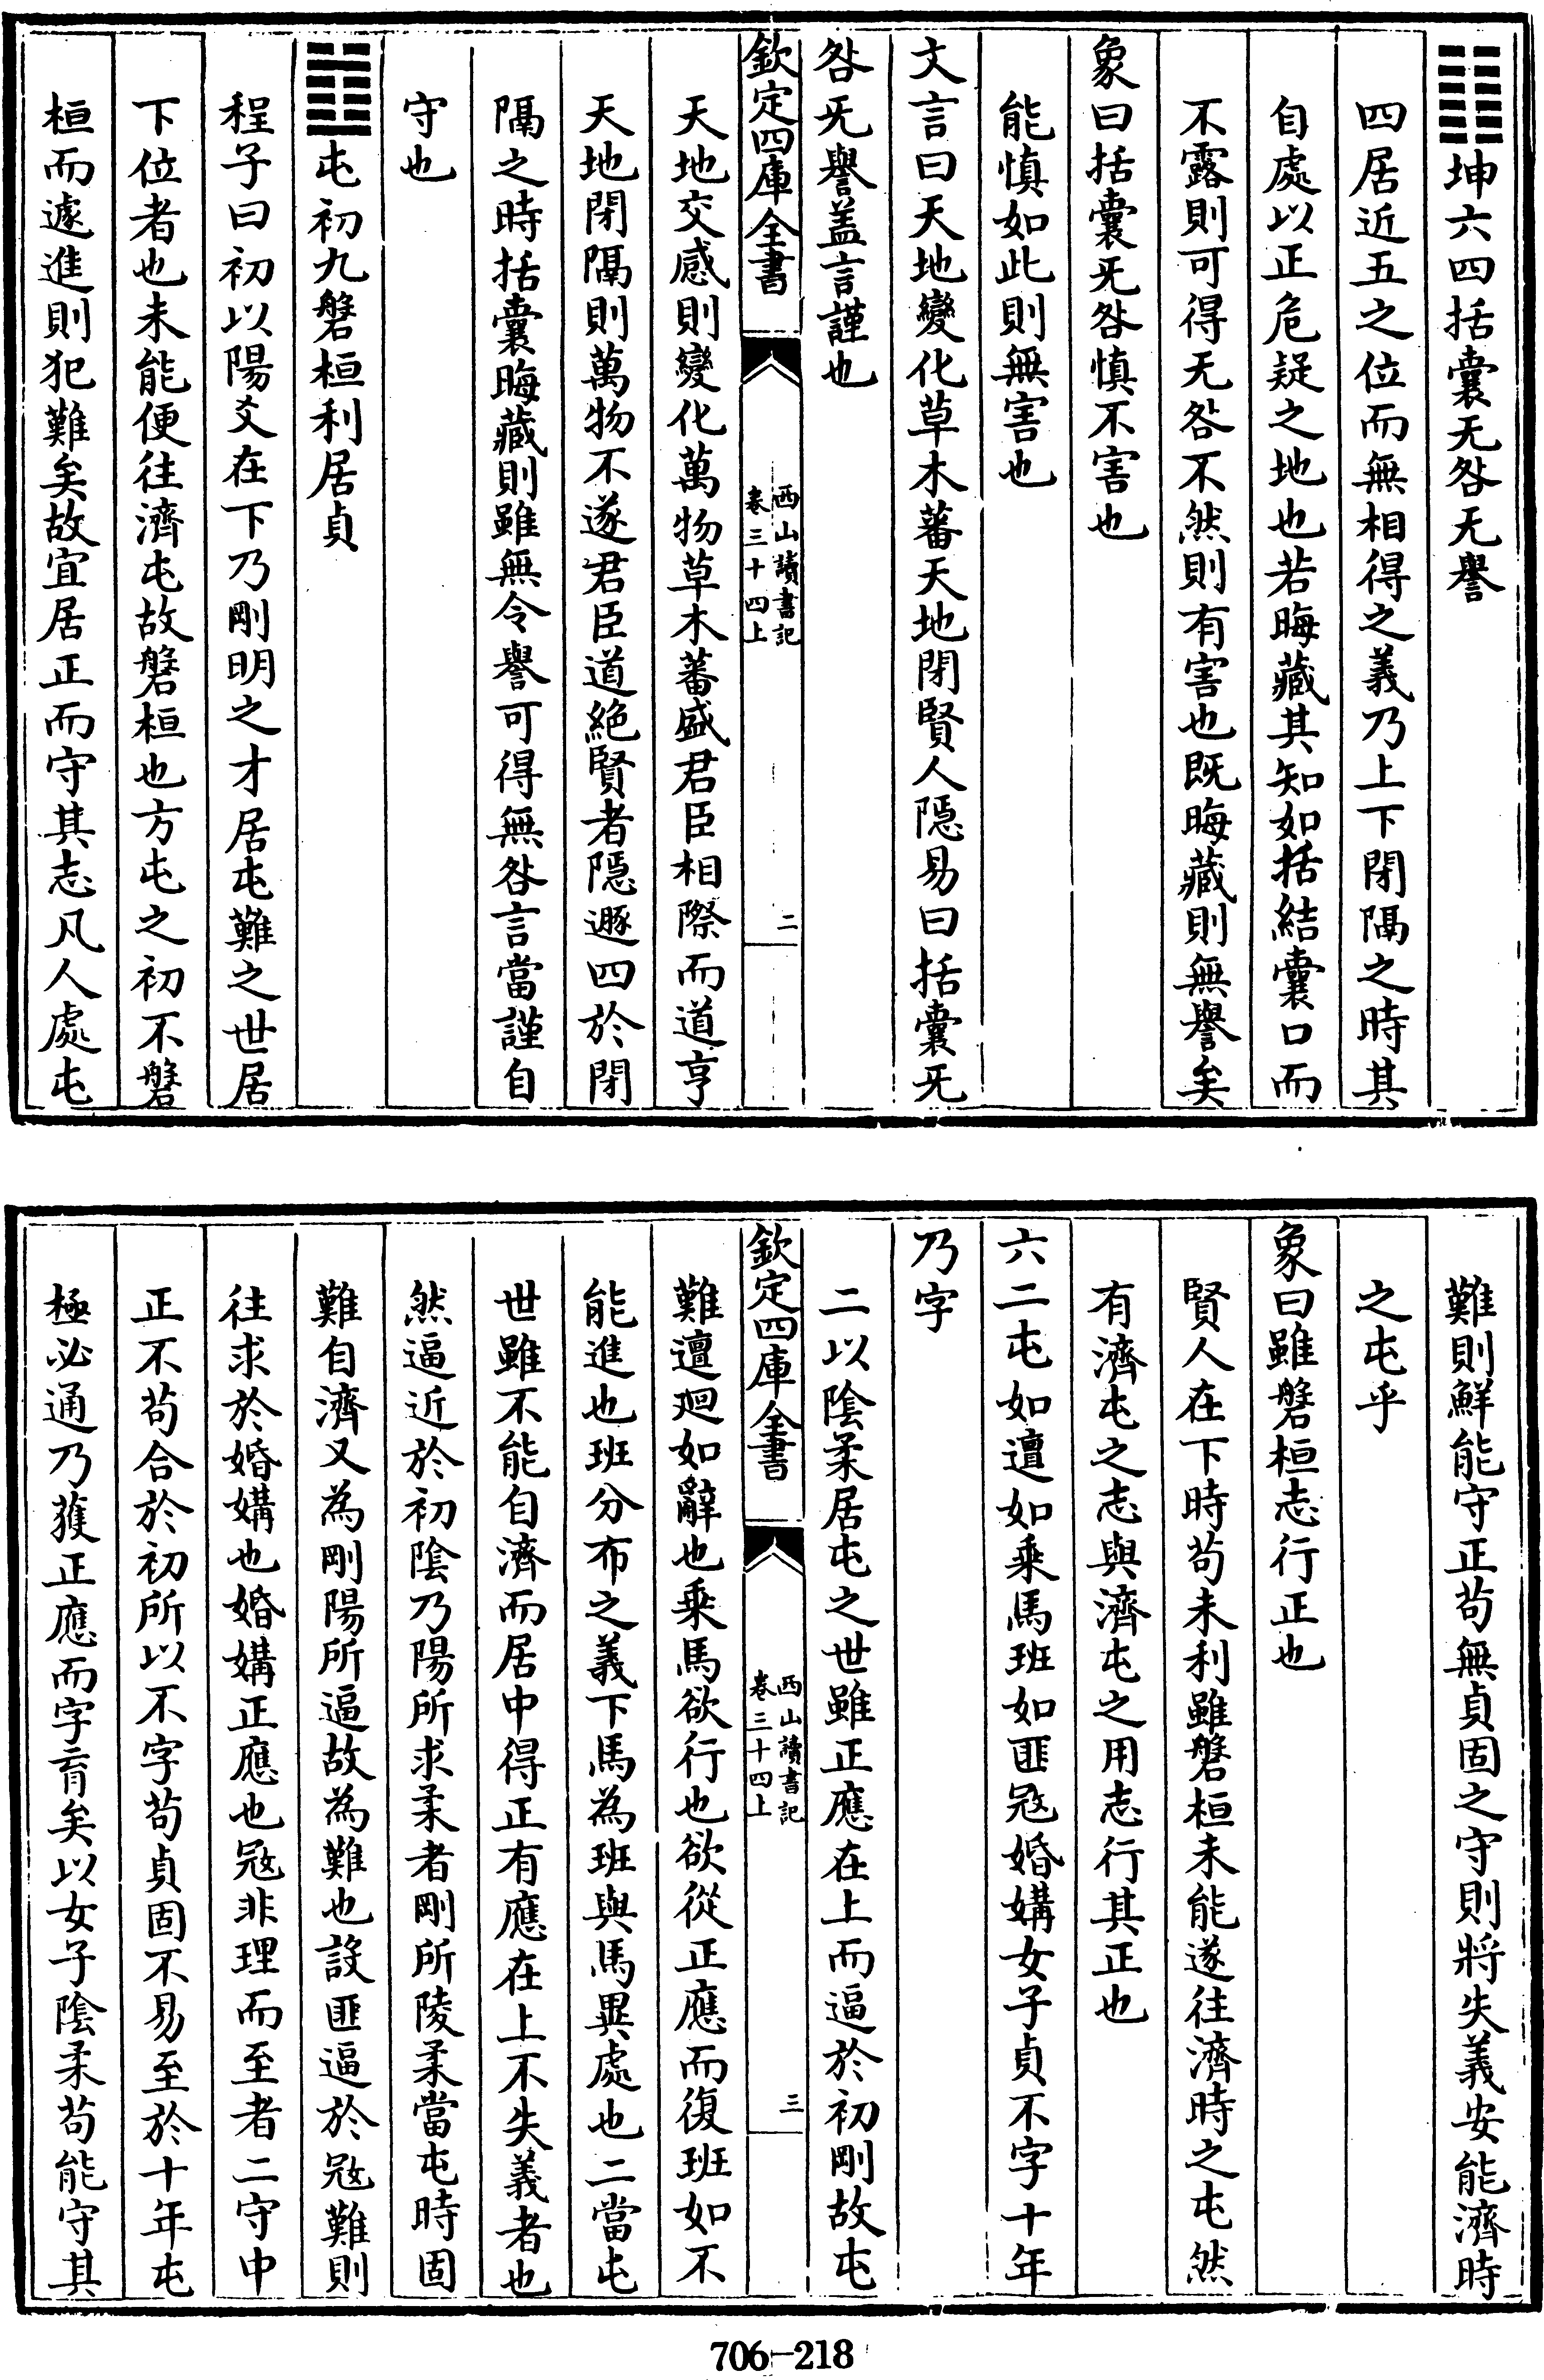 ䷁坤六四括囊无咎无譽
四居近五之位而無相得之義乃上下閉隔之時其
自處以正危疑之地也若晦藏其知如括結囊口而
不露則可得无咎不然則有害也既晦藏則無譽矣
象曰括囊旡咎慎不害也
能慎如此則無害也
文言曰天地變化草木蕃天地閉賢人隱易曰括囊旡
咎旡譽盖言謹也
欽定四庫全書
西山讀書記
卷三十四上
二
天地交感則變化萬物草木蕃盛君臣相際而道亨
天地閉隔則萬物不遂君臣道絶賢者隱遯四於閉
隔之時括囊晦藏則雖無令譽可得無咎言當謹自
守也
䷂屯初九磐桓利居貞
程子曰初以陽爻在下乃剛明之才居屯難之世居
下位者也未能便往濟屯故磐桓也方屯之初不磐
桓而遽進則犯難矣故宜居正而守其志凡人處屯
難則鮮能守正苟無貞固之守則將失義安能濟時
之屯乎
象曰雖磐桓志行正也
賢人在下時苟未利雖磐桓未能遂往濟時之屯然
有濟屯之志與濟屯之用志行其正也
六二屯如邅如乘馬班如匪寇婚媾女子貞不字十年
乃字
二以陰柔居屯之世雖正應在上而逼於初剛故屯
欽定四庫全書
西山讀書記
卷三十四上
三
難邅廻如辭也乘馬欲行也欲從正應而復班如不
能進也班分布之義下馬為班與馬異處也二當屯
世雖不能自濟而居中得正有應在上不失義者也
然逼近於初陰乃陽所求柔者剛所陵柔當屯時固
難自濟又為剛陽所逼故為難也設匪逼於寇難則
往求於婚媾也婚媾正應也寇非理而至者二守中
正不苟合於初所以不字苟貞固不易至於十年屯
極必通乃獲正應而字育矣以女子陰柔苟能守其
706-218